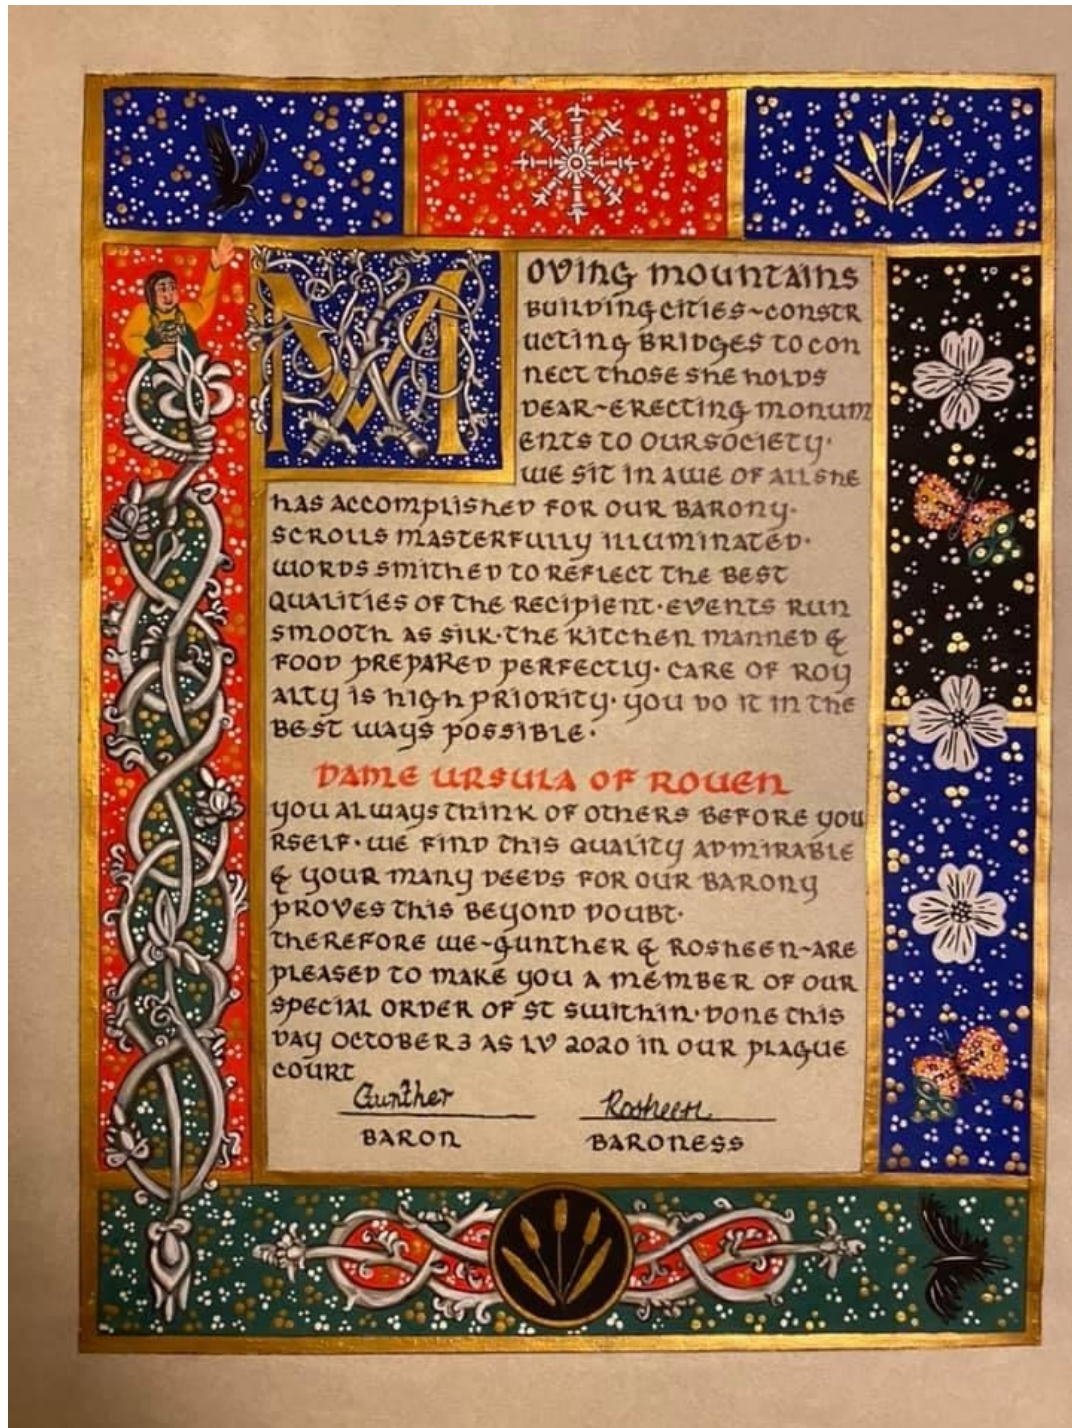 MOVING MOUNTAINS
BUILDING CITIES~CONSTR
UCTING BRIDGES TO CON
NECT THOSE SHE HOLDS
DEAR~ERECTING MONUM
ENTS TO OUR SOCIETY·
WE SIT IN AWE OF ALL SHE
HAS ACCOMPLISHED FOR OUR BARONY·
SCROLLS MASTERFULLY ILLUMINATED·
WORDS SMITHED TO REFLECT THE BEST
QUALITIES OF THE RECIPIENT·EVENTS RUN
SMOOTH AS SILK·THE KITCHEN MANNED &
FOOD PREPARED PERFECTLY· CARE OF ROY
ALTY IS HIGH PRIORITY· YOU DO IT IN THE
BEST WAYS POSSIBLE·
DAME URSULA OF ROUEN
YOU ALWAYS THINK OF OTHERS BEFORE YOU
RSELF· WE FIND THIS QUALITY ADMIRABLE
& YOUR MANY DEEDS FOR OUR BARONY
PROVES THIS BEYOND DOUBT·
THEREFORE WE~GUNTHER & ROSHEEN~ARE
PLEASED TO MAKE YOU A MEMBER OF OUR
SPECIAL ORDER OF ST SWITHIN· DONE THIS
DAY OCTOBER 3 AS LV 2020 IN OUR PLAGUE
COURT
Gunther Rosheen
BARON BARONESS